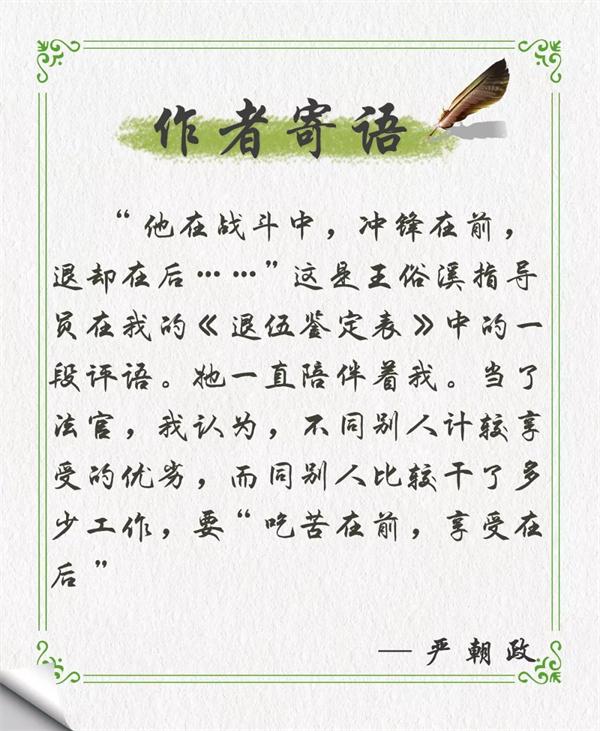 作者寄语
“他在战斗中，冲锋在前，
退却在后……”这是王俗溪指导
员在我的《退伍鉴定表》中的一
段评语。她一直陪伴着我。当了
法官，我认为，不同别人计较享
受的优劣，而同别人比较干了多
少工作，要“吃苦在前，享受在
后”
—严朝政